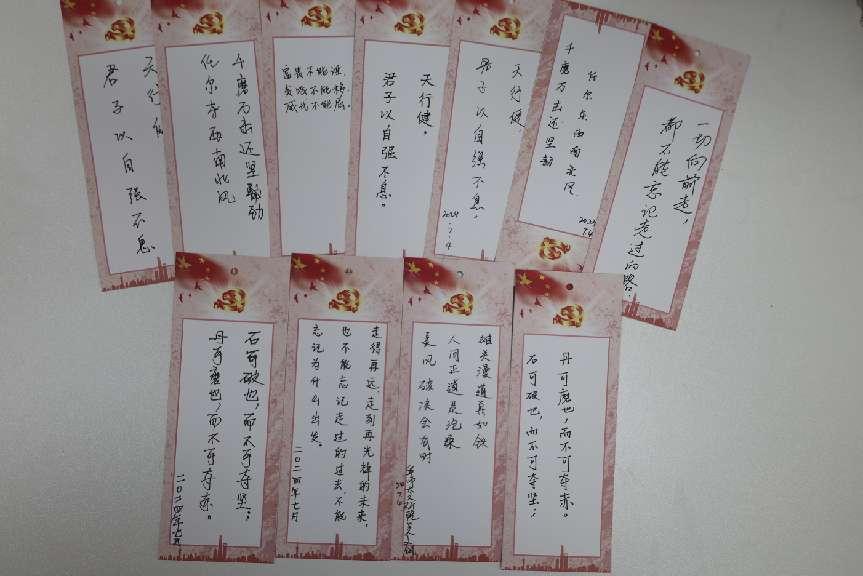 天行
君子以自强不息
千磨万击还坚韧劲
任尔东西南北风
富贵不能淫
贫贱不能移
威武不能屈。
天行健,
君子以自强不息。
天行健
君子以自强不息,
2024
任尔东西南北风
千磨万击还坚韧
2024
7.4
一切向前走,
都不能忘记走过的路.
石可破也,而不可夺坚;
丹可磨也,而不可夺赤。
二〇二四年七月
走得再远、走到再光辉的未来,
也不能忘记走过的过去,不能
忘记为什么出发。
二〇二四年七月
雄关漫道真如铁
人间正道是沧桑
长风破浪会有时
丹可磨也,而不可夺赤。
石可破也,而不可夺坚;